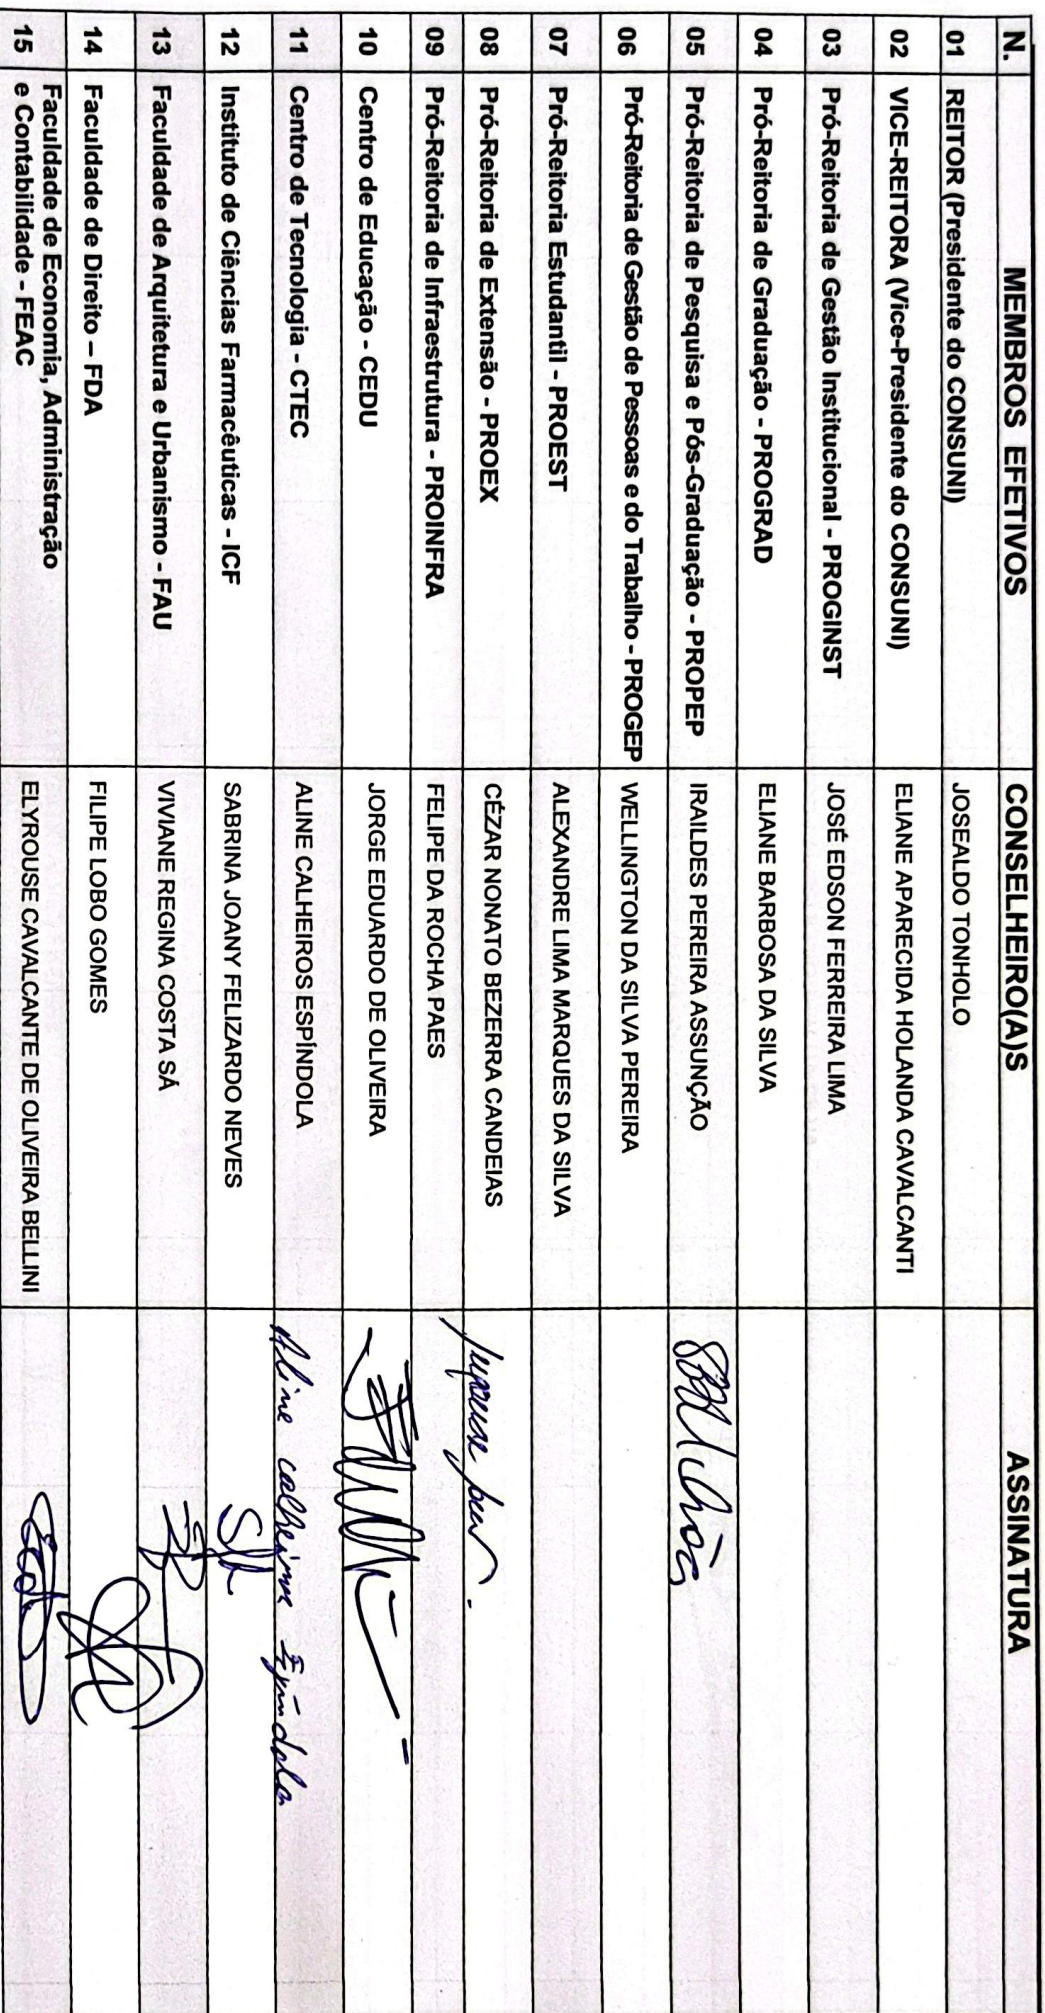 N. MEMBROS EFETIVOS CONSELHEIRO(A)S ASSINATURA
01 REITOR (Presidente do CONSUNI) JOSEALDO TONHOLO
02 VICE-REITORA (Vice-Presidente do CONSUNI) ELIANE APARECIDA HOLANDA CAVALCANTI
03 Pró-Reitoria de Gestão Institucional - PROGINST JOSÉ EDSON FERREIRA LIMA
04 Pró-Reitoria de Graduação - PROGRAD ELIANE BARBOSA DA SILVA
05 Pró-Reitoria de Pesquisa e Pós-Graduação - PROPEP IRAILDES PEREIRA ASSUNÇÃO
06 Pró-Reitoria de Gestão de Pessoas e do Trabalho - PROGEP WELLINGTON DA SILVA PEREIRA
07 Pró-Reitoria Estudantil - PROEST ALEXANDRE LIMA MARQUES DA SILVA
08 Pró-Reitoria de Extensão - PROEX CÉZAR NONATO BEZERRA CANDEIAS
09 Pró-Reitoria de Infraestrutura - PROINFRA FELIPE DA ROCHA PAES
10 Centro de Educação - CEDU JORGE EDUARDO DE OLIVEIRA
11 Centro de Tecnologia - CTEC ALINE CALHEIROS ESPÍNDOLA Aline Calheiros Espíndola
12 Instituto de Ciências Farmacêuticas - ICF SABRINA JOANY FELIZARDO NEVES
13 Faculdade de Arquitetura e Urbanismo - FAU VIVIANE REGINA COSTA SÁ
14 Faculdade de Direito – FDA FILIPE LOBO GOMES
15 Faculdade de Economia, Administração
e Contabilidade - FEAC ELYROUSE CAVALCANTE DE OLIVEIRA BELLINI